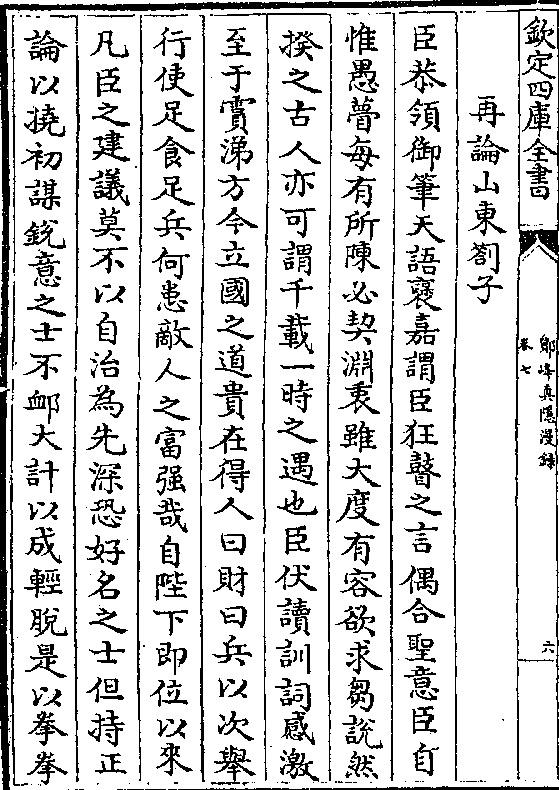 欽定四庫全書
鄮峰真隱漫錄
卷七
六
再論山東劄子
臣恭領御筆天語褒嘉謂臣狂瞽之言偶合聖意臣自
惟愚瞢每有所陳必契淵衷雖大度有容欲求芻說然
揆之古人亦可謂千載一時之遇也臣伏讀訓詞感激
至于霣涕方今立國之道貴在得人曰財曰兵以次舉
行使足食足兵何患敵人之富强哉自陛下即位以來
凡臣之建議莫不以自治為先深恐好名之士但持正
論以撓初謀銳意之士不䘏大計以成輕脫是以拳拳